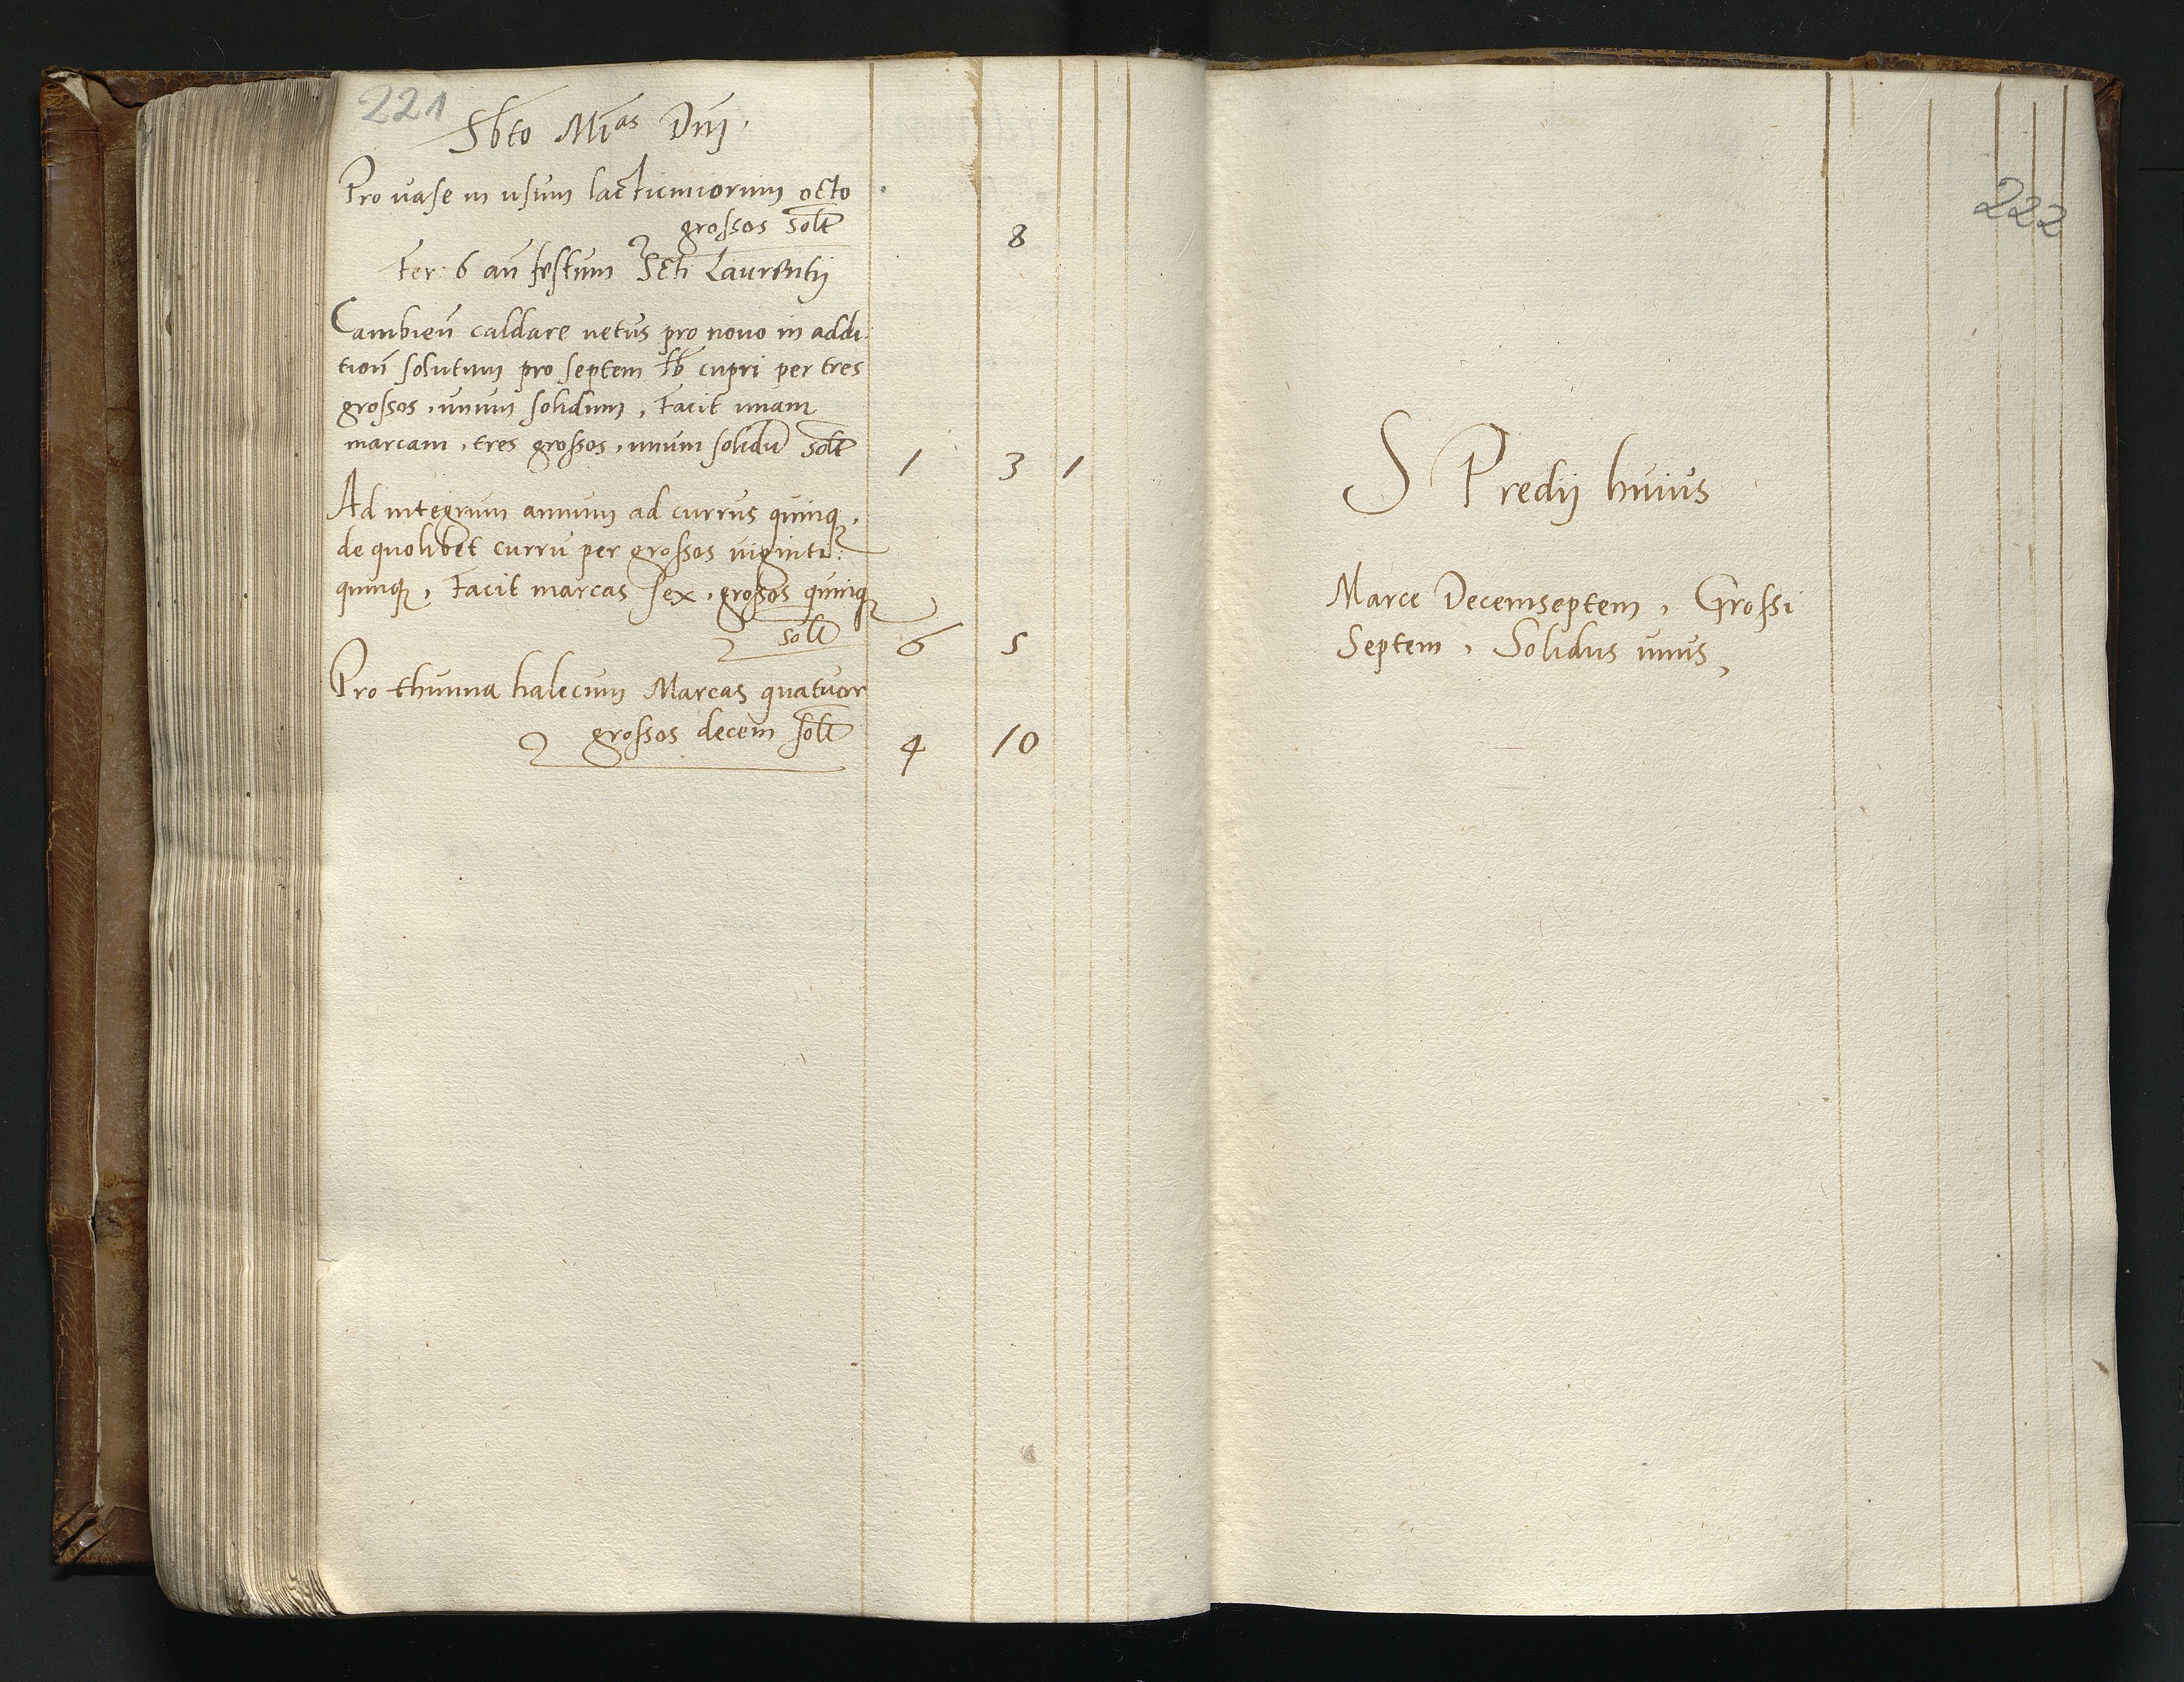 221
Sbto Mias Dnj.
Pro vase in usum lacticiniorum octo
grossos solt 8
Fer: 6 an festum Scti Laurentij
Cambien caldare vetus pro novo in addi:
tion solutum pro septem lb cupri per tres
grossos, unum solidum, Facit unam
marcam, tres grossos, unum solidu solt 1 3 1
Ad integrum annum ad currus quinq,
de quolibet curru per grossos viginti:
quinq, Facit marcas sex, grossos quinq
solt 6 5
Pro thunna halecum Marcas quatuor
grossos decem solt 4 10
222
S Predij huius
Marce Decemseptem, Grossi
Septem, Solidus unus,